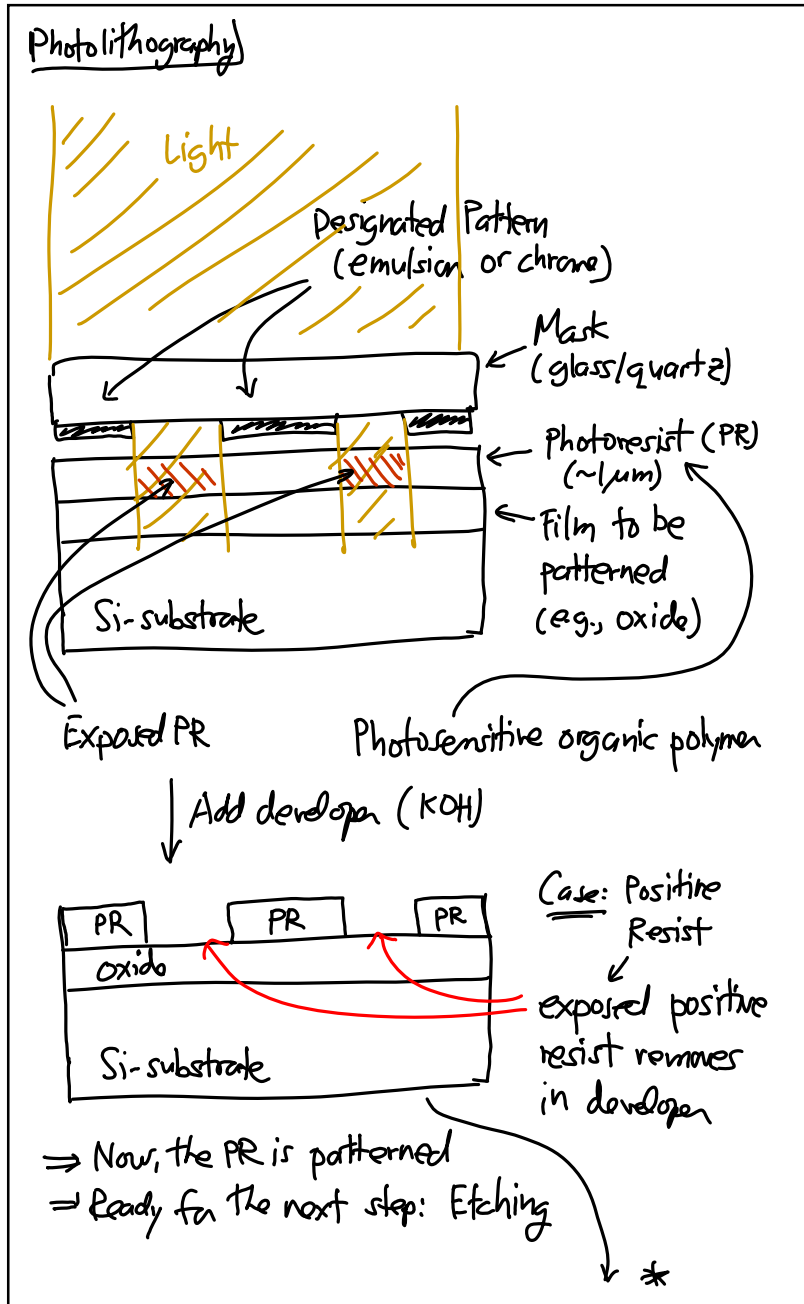 Photolithography
Light
Designated Pattern
(emulsion or chrome)
Mask
(glass/quartz)
Photoresist (PR)
(~1μm)
Film to be
patterned
(e.g., oxide)
Si-substrate
Exposed PR
Photosensitive organic polymer
Add developer (KOH)
PR
PR
PR
oxide
Si-substrate
Case: Positive
Resist
exposed positive
resist removes
in developer
⇒ Now, the PR is patterned
⇒ Ready for the next step: Etching
*